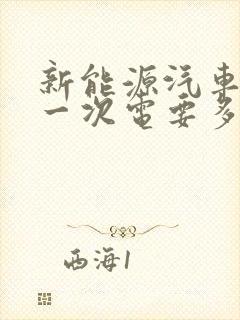 新能源汽车
一次电要多
西海1